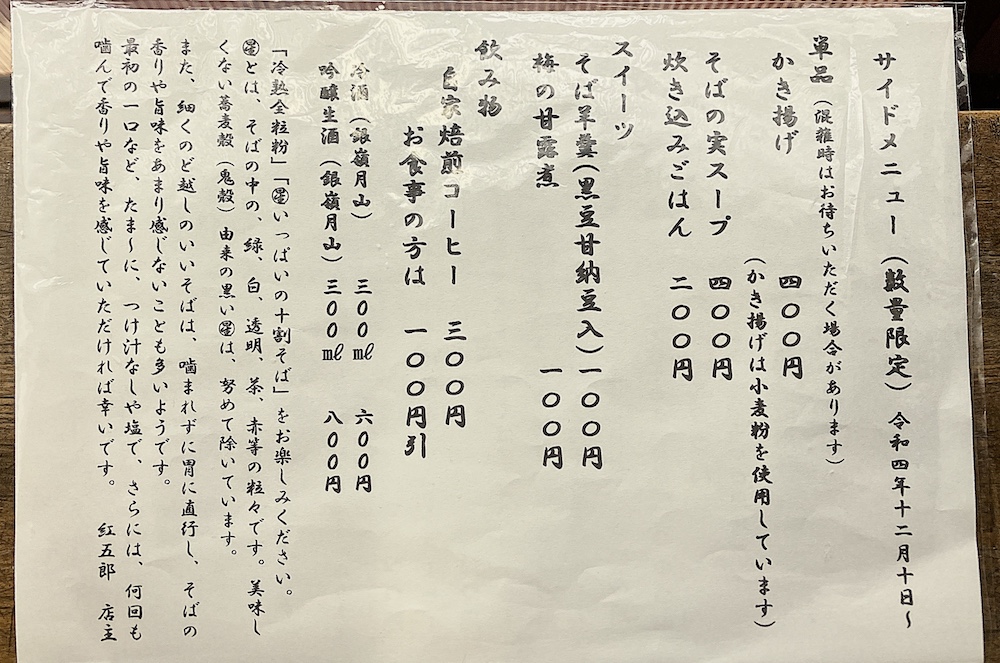 サイドメニュー(数量限定)令和四年十二月十日~
単品(混雑時はお待ちいただく場合があります)
かき揚げ 四〇〇円
(かき揚げは小麦粉を使用しています)
そばの実スープ 四〇〇円
炊き込みごはん 二〇〇円
スイーツ
そば羊羹(黒豆甘納豆入)一〇〇円
梅の甘露煮 一〇〇円
飲み物
自家焙煎コーヒー 三〇〇円
お食事の方は 一〇〇円引
冷酒(銀嶺月山) 三〇〇㎖ 六〇〇円
吟醸生酒(銀嶺月山)三〇〇㎖ 八〇〇円
「冷熟全粒粉」「㊐いっぱいの十割そば」をお楽しみください。
とは、そばの中の、緑、白、透明、茶、赤等の粒々です。美味し
くない蕎麦殻(鬼殻)由来の黒いは、努めて除いています。
また、細くのど越しのいいそばは、噛まれずに胃に直行し、そばの
香りや旨味をあまり感じないことも多いようです。
最初の一口など、たま~に、つけ汁なしや塩で、さらには、何回も
噛んで香りや旨味を感じていただければ幸いです。 紅五郎 店主